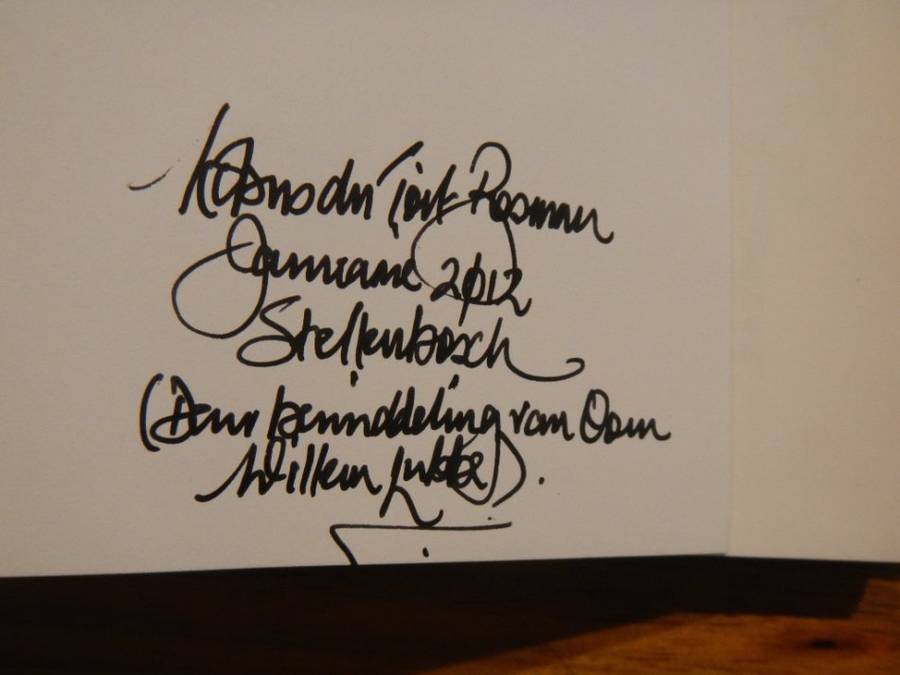 Kobus du Toit Rosman
Januarie 2012
Stellenbosch
(Deur bemiddeling van Oom
Willem Lubbe).